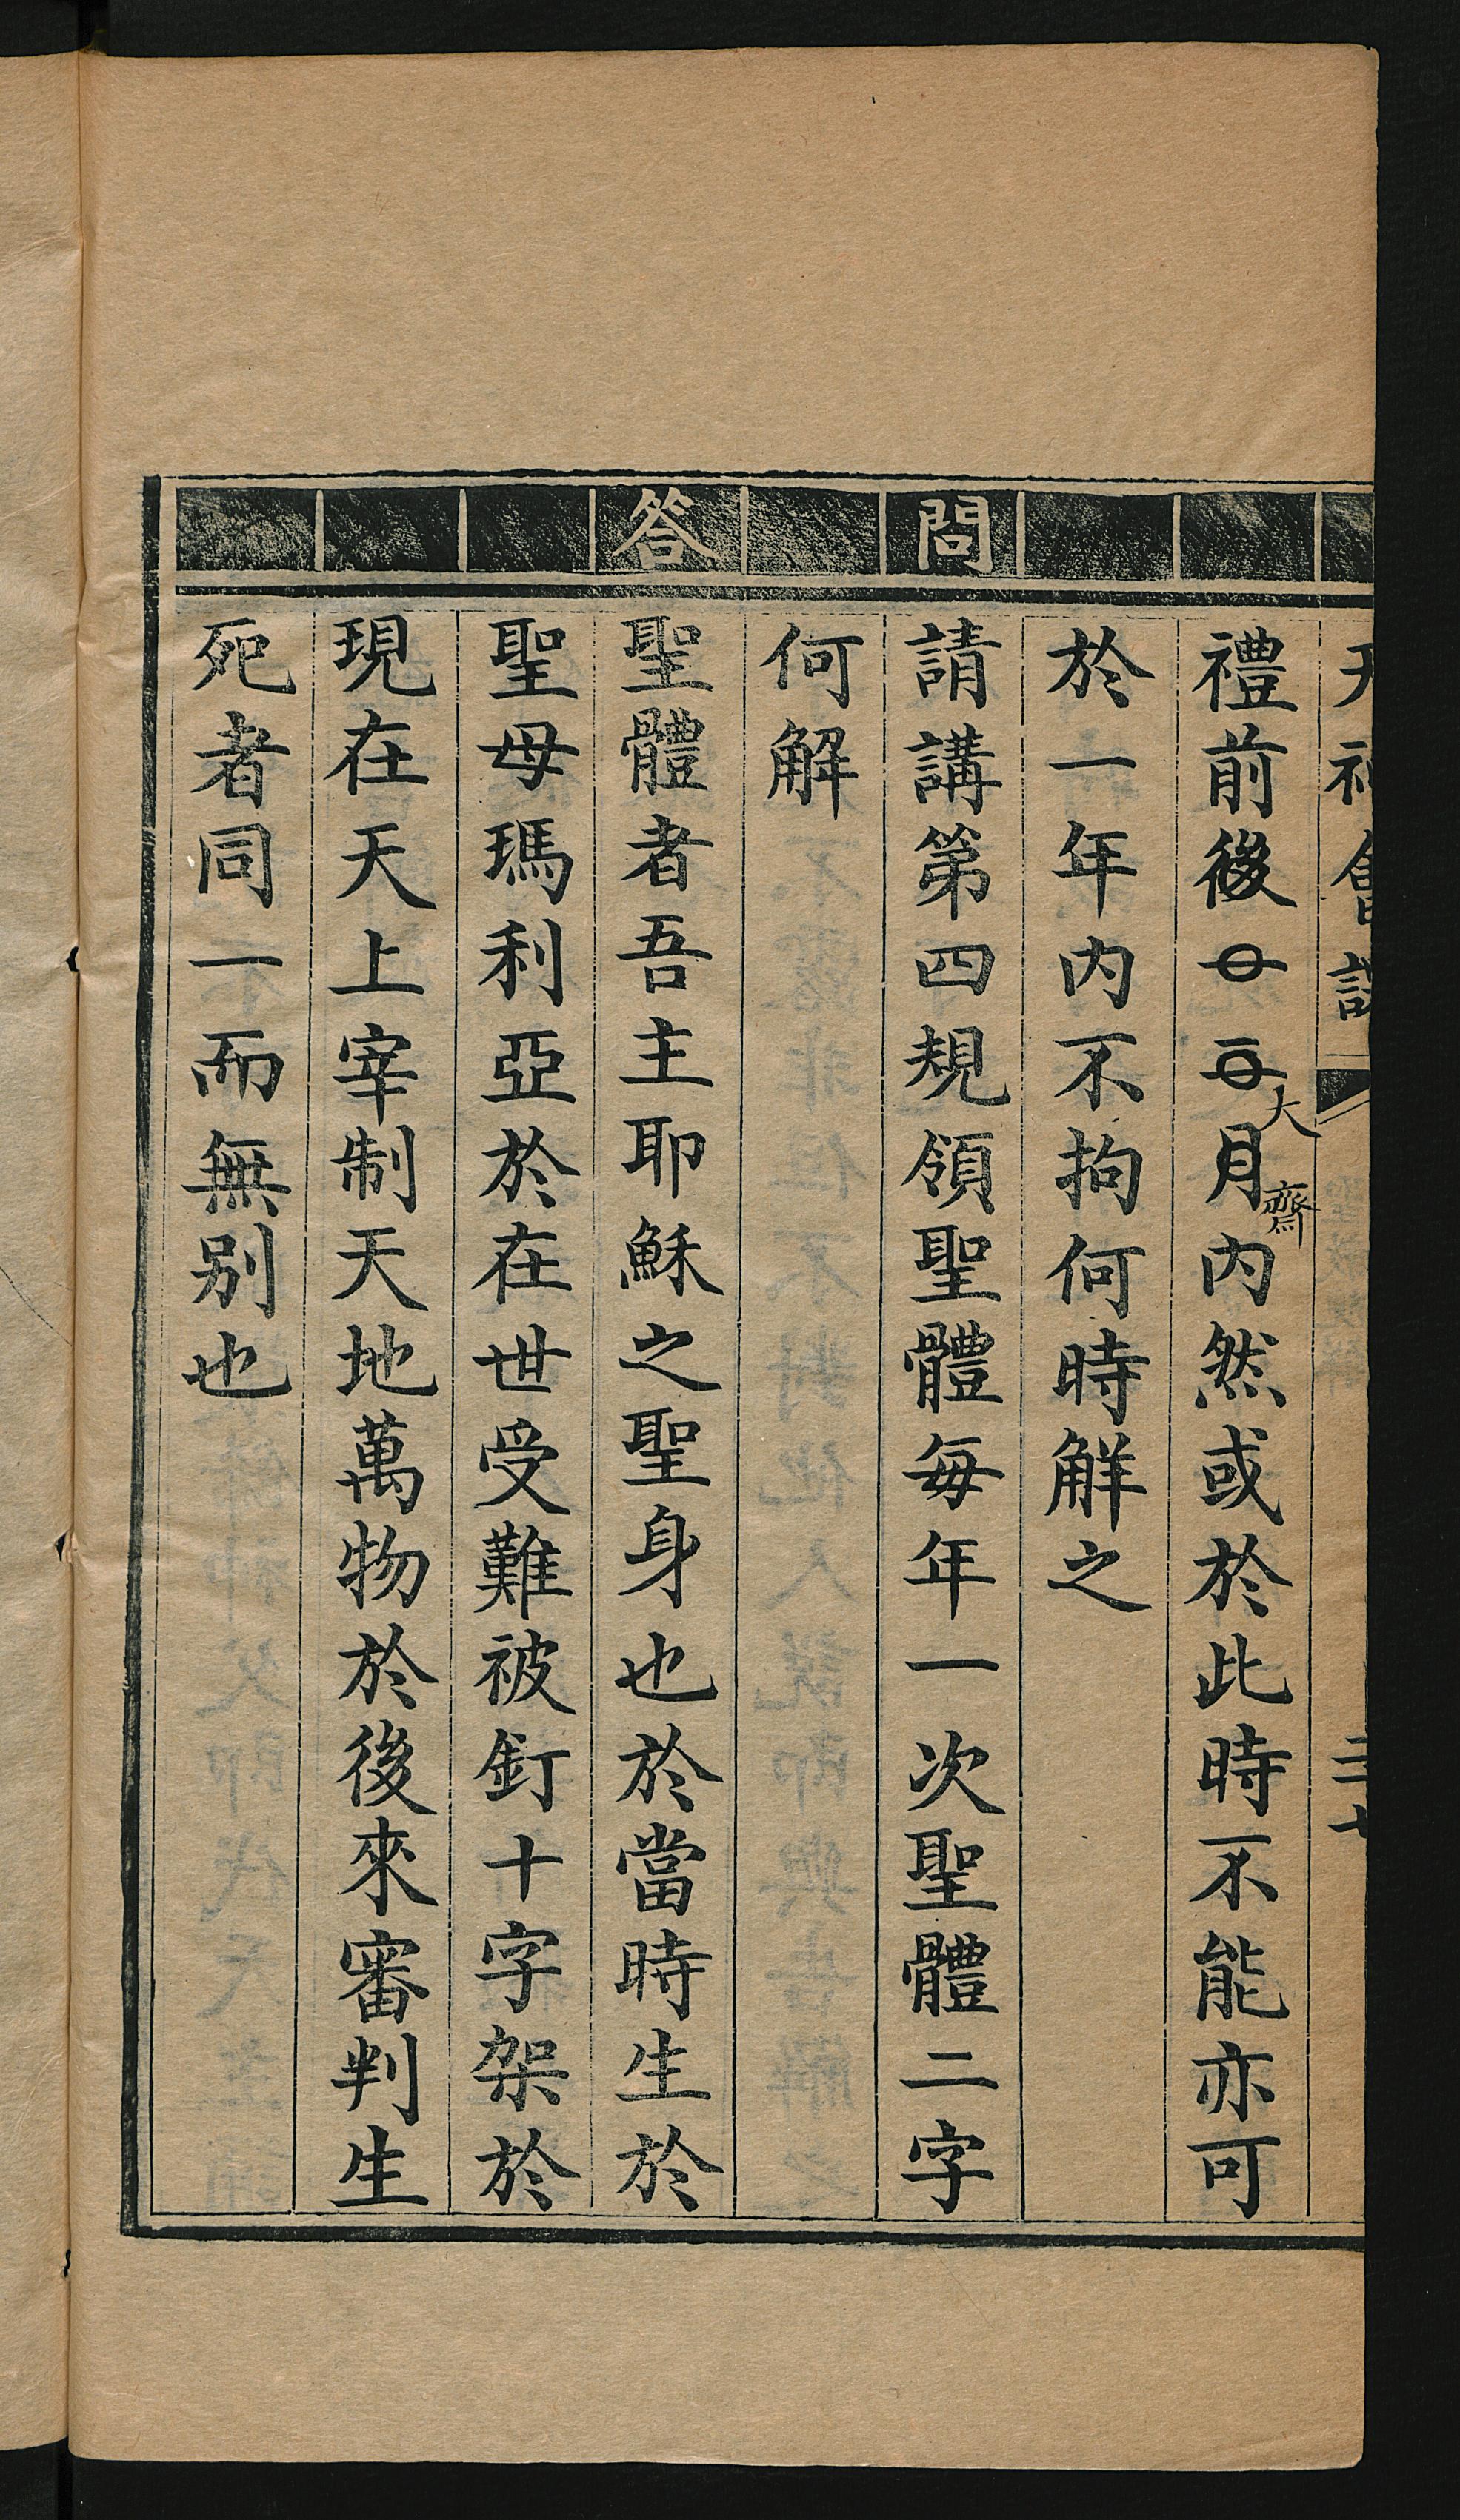 天神會課
二十七
禮前後一二大月齋內然或於此時不能亦可
於一年內不拘何時解之
問
請講第四規領聖體每年一次聖體二字
何解
答
聖體者吾主耶穌之聖身也於當時生於
聖母瑪利亞於在世受難被釘十字架於
現在天上宰制天地萬物於後來審判生
死者同一而無別也